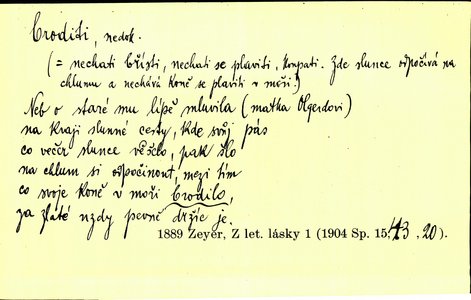 broditi, nedok.
(= nechati břísti, nechati se plaviti, koupati. Zde slunce odpočívá na
chlumu a nechává koně se plaviti v moři.)
Neb o staré mu lípě mluvila (matka Olgerdovi)
na kraji slunné cesty, kde svůj pás
co večer slunce věšelo, pak šlo
na chlum si odpočinout, mezi tím
co svoje koně v moři brodilo,
za zlaté uzdy pevně držíc je.
1889 Zeyer, Z let. lásky 1 (1904 Sp. 15, 43, 20).